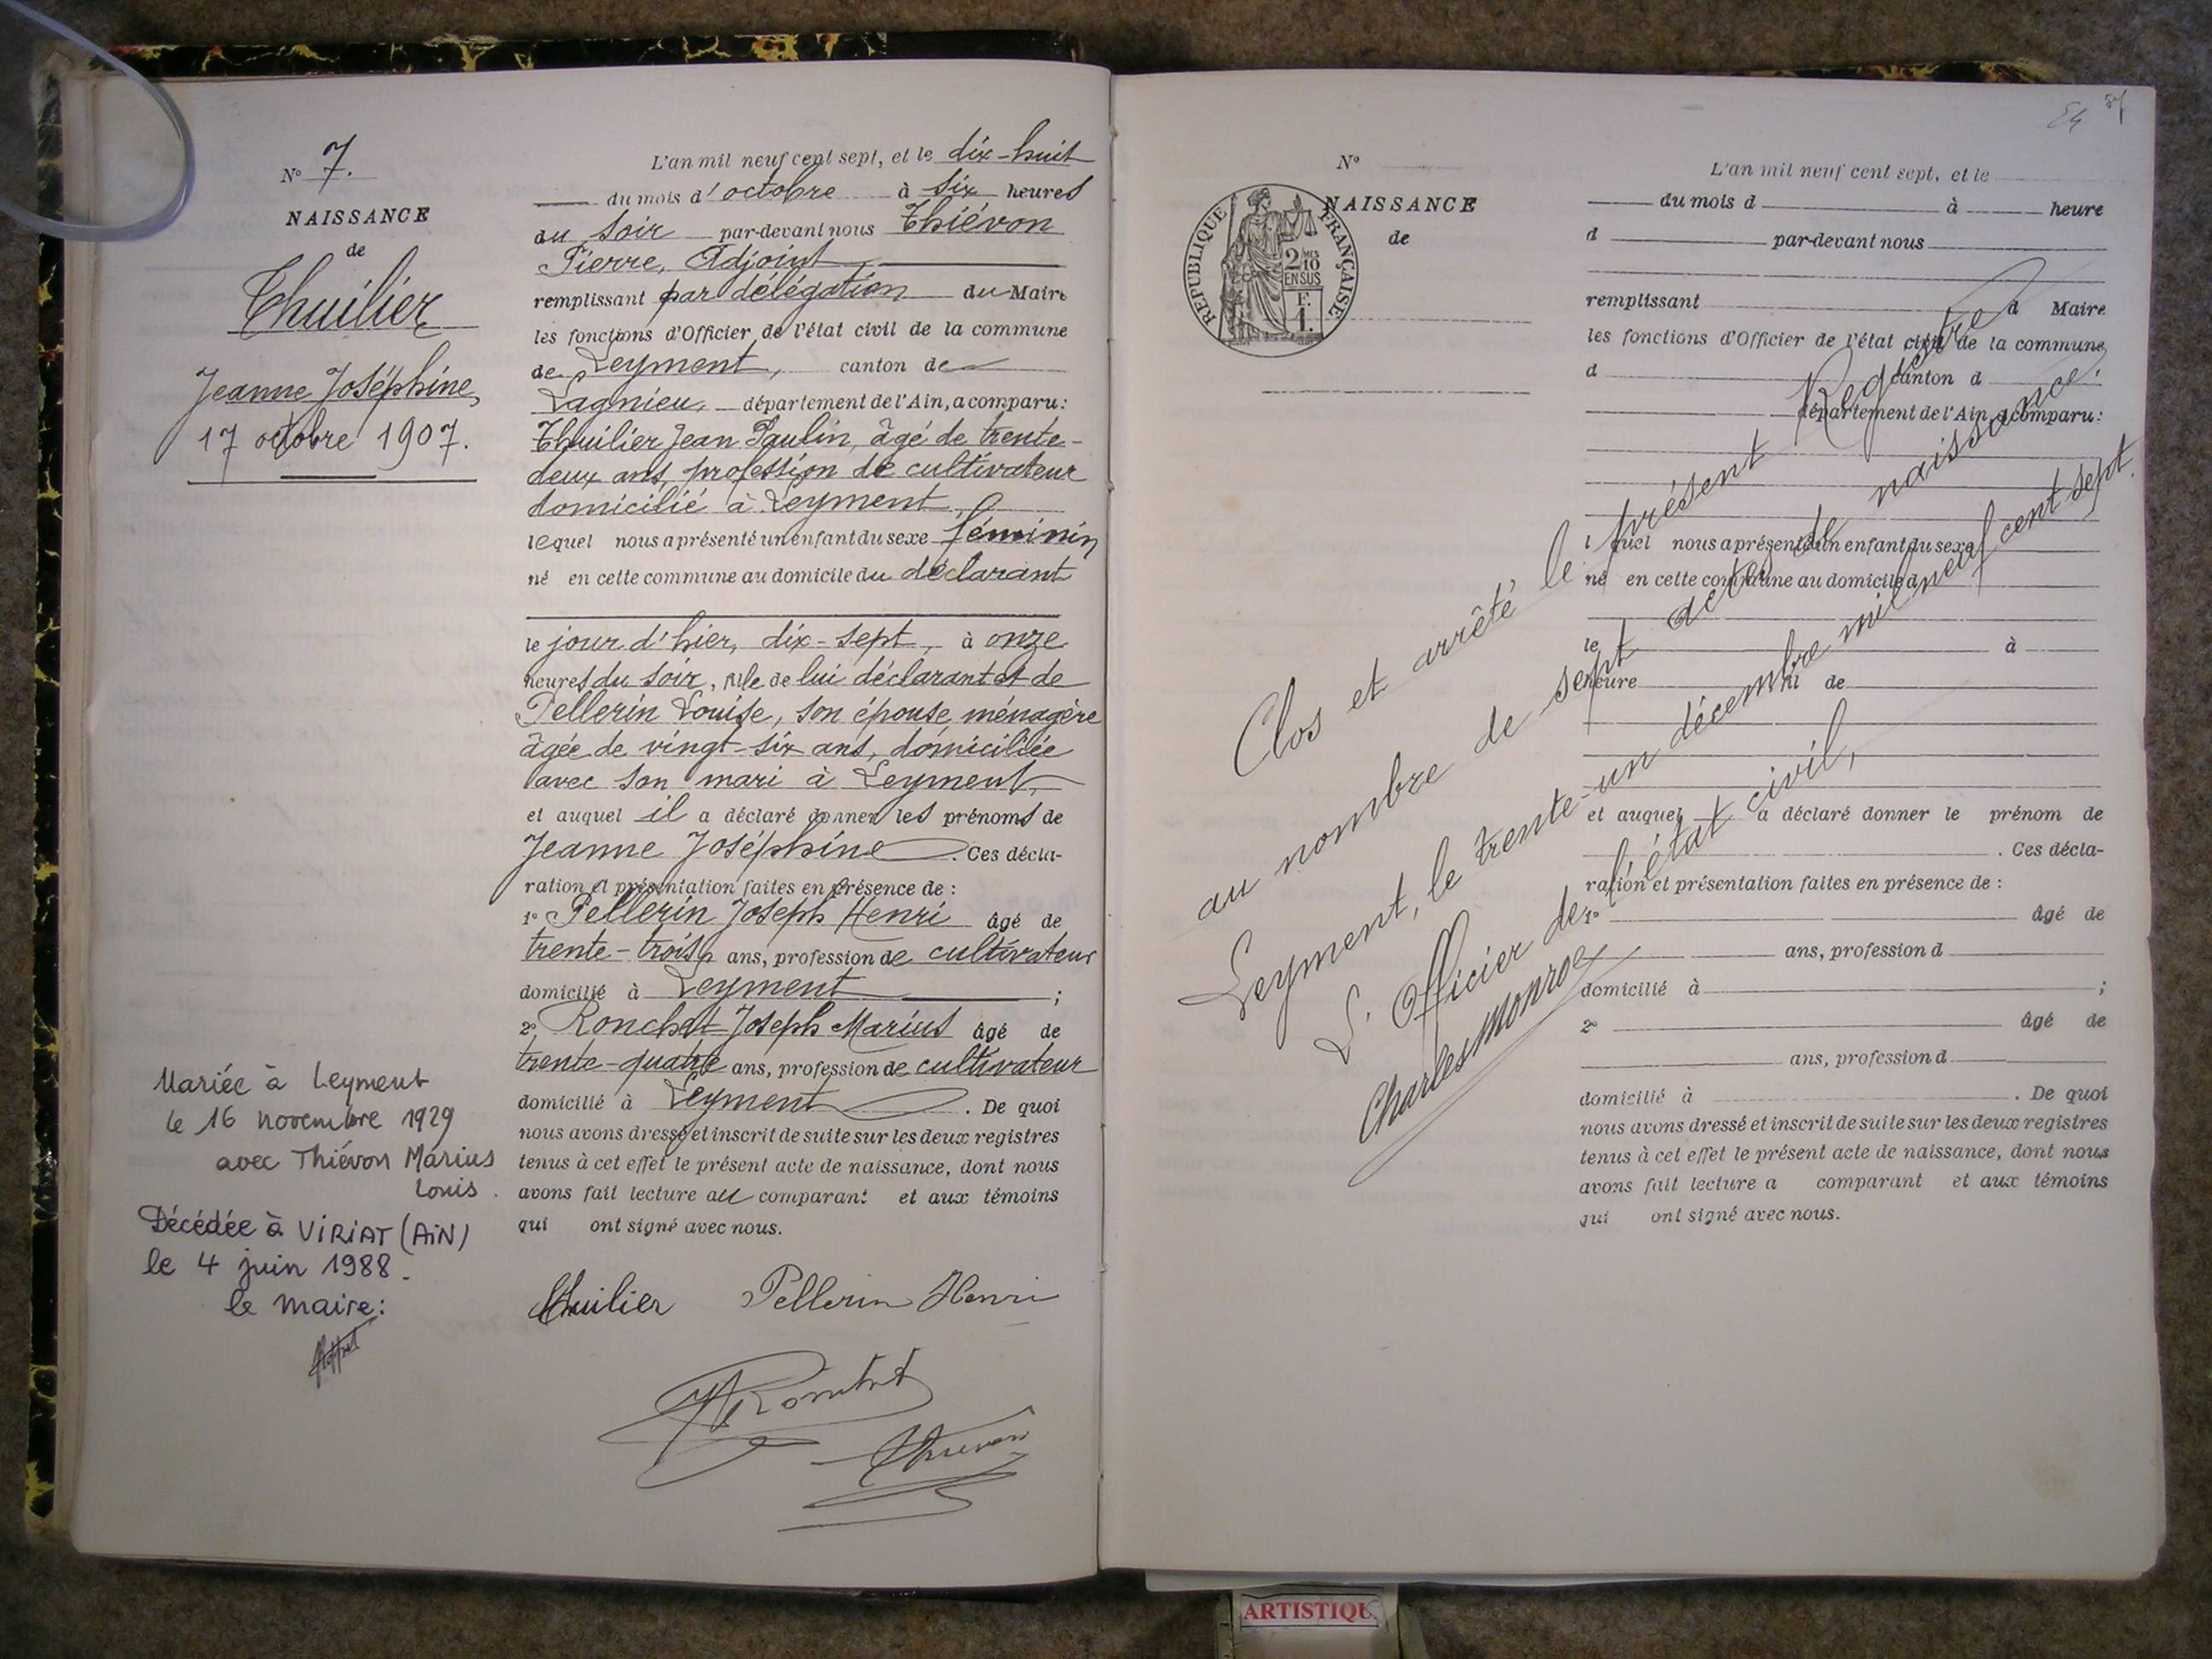 N° 7.
NAISSANCE
de
Thuilier
Jeanne Joséphine,
17 octobre 1907.
Mariée à Leyment
le 16 novembre 1929
avec Thiévon Marius
Louis.
Décédée à VIRIAT (AIN)
le 4 juin 1988.
le maire:
L'an mil neuf cent sept, et le dix-huit
du mois d'octobre à six heures
du soir par-devant nous Thiévon
Pierre, Adjoint
remplissant par délégation du Maire
les fonctions d'Officier de l'état civil de la commune
de Leyment, canton de
Lagnieu, département de l'Ain, a comparu:
Thuilier Jean Paulin, âgé de trente-
deux ans, profession de cultivateur
domicilié à Leyment,
lequel nous a présenté un enfant du sexe féminin
né en cette commune au domicile du déclarant
le jour d'hier, dix-sept, à onze
heures du soir, fille de lui déclarant et de
Pellerin Louise, son épouse, ménagère
âgée de vingt-six ans, domiciliée
avec son mari à Leyment,
et auquel il a déclaré donner les prénoms de
Jeanne Joséphine. Ces décla-
ration et présentation faites en présence de :
1° Pellerin Joseph Henri âgé de
trente-trois ans, profession de cultivateur
domicilié à Leyment ;
2° Ronchet Joseph Marius âgé de
trente-quatre ans, profession de cultivateur
domicilié à Leyment. De quoi
nous avons dressé et inscrit de suite sur les deux registres
tenus à cet effet le présent acte de naissance, dont nous
avons fait lecture au comparant et aux témoins
qui ont signé avec nous.
Thuilier Pellerin Henri
Ronchet
Thiévon
54
N°
NAISSANCE
de
RÉPUBLIQUE FRANÇAISE
2/10
EN SUS
F.
1.
L'an mil neuf cent sept, et le
du mois d à heure
d par-devant nous
remplissant d Maire
les fonctions d'Officier de l'état civil de la commune
d canton d
département de l'Ain, a comparu:
l quel nous a présenté un enfant du sexe
né en cette commune au domicile d
le à
heure fil de
et auquel a déclaré donner le prénom de
. Ces décla-
ration et présentation faites en présence de :
1° âgé de
ans, profession d
domicilié à ;
2° âgé de
ans, profession d
domicilié à . De quoi
nous avons dressé et inscrit de suite sur les deux registres
tenus à cet effet le présent acte de naissance, dont nous
avons fait lecture a comparant et aux témoins
qui ont signé avec nous.
Clos et arrêté le présent Registre
au nombre de sept actes de naissance.
Leyment, le trente-un décembre mil neuf cent sept.
L'Officier de l'état civil,
Charles Monroe
ARTISTIQU